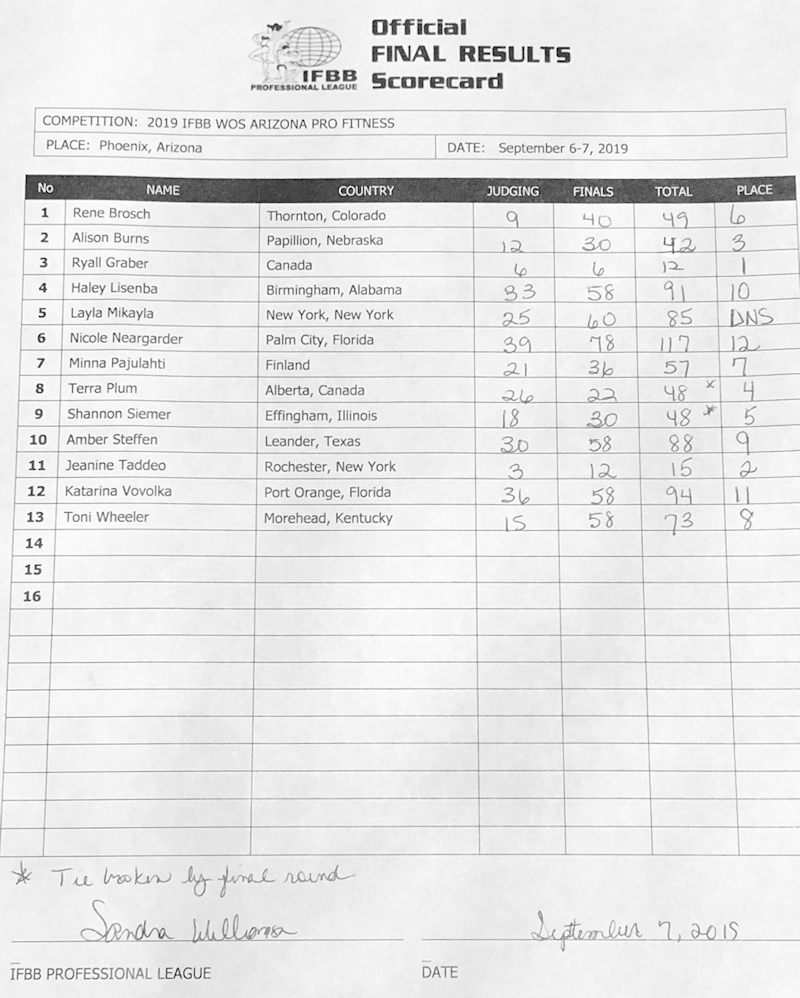 Official
FINAL RESULTS
Scorecard
IFBB
PROFESSIONAL LEAGUE
COMPETITION: 2019 IFBB WOS ARIZONA PRO FITNESS
PLACE: Phoenix, Arizona DATE: September 6-7, 2019
No NAME COUNTRY JUDGING FINALS TOTAL PLACE
1 Rene Brosch Thornton, Colorado 9 40 49 6
2 Alison Burns Papillion, Nebraska 12 30 42 3
3 Ryall Graber Canada 6 6 12 1
4 Haley Lisenba Birmingham, Alabama 33 58 91 10
5 Layla Mikayla New York, New York 25 60 85 DNS
6 Nicole Neargarder Palm City, Florida 39 78 117 12
7 Minna Pajulahti Finland 21 36 57 7
8 Terra Plum Alberta, Canada 26 22 48 * 4
9 Shannon Siemer Effingham, Illinois 18 30 48 * 5
10 Amber Steffen Leander, Texas 30 58 88 9
11 Jeanine Taddeo Rochester, New York 3 12 15 2
12 Katarina Vovolka Port Orange, Florida 36 58 94 11
13 Toni Wheeler Morehead, Kentucky 15 58 73 8
14
15
16
* Tie broken by final round
Sandra Williamson September 7, 2019
IFBB PROFESSIONAL LEAGUE DATE